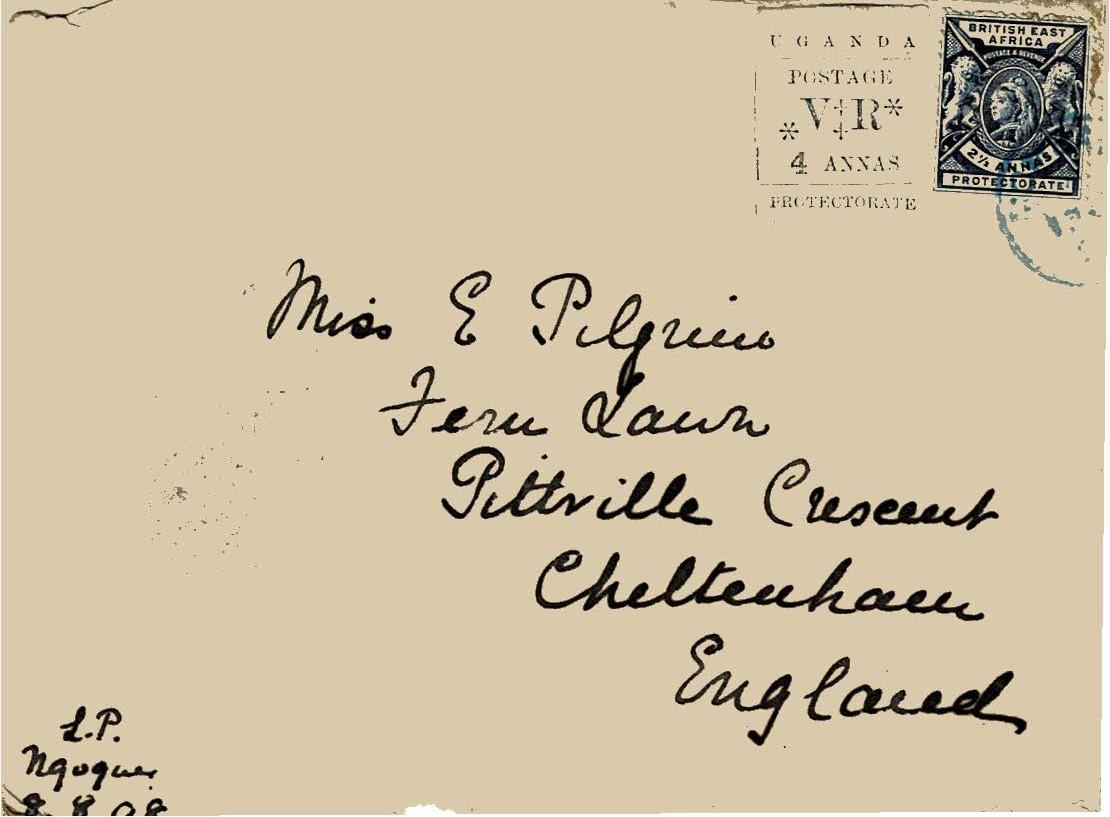 UGANDA
POSTAGE
*V‡R*
4 ANNAS
PROTECTORATE
BRITISH EAST
AFRICA
POSTAGE & REVENUE
2½ ANNAS
PROTECTORATE
Miss E Pilgrim
Fern Lawn
Pittville Crescent
Cheltenham
England
L.P.
8.8.98